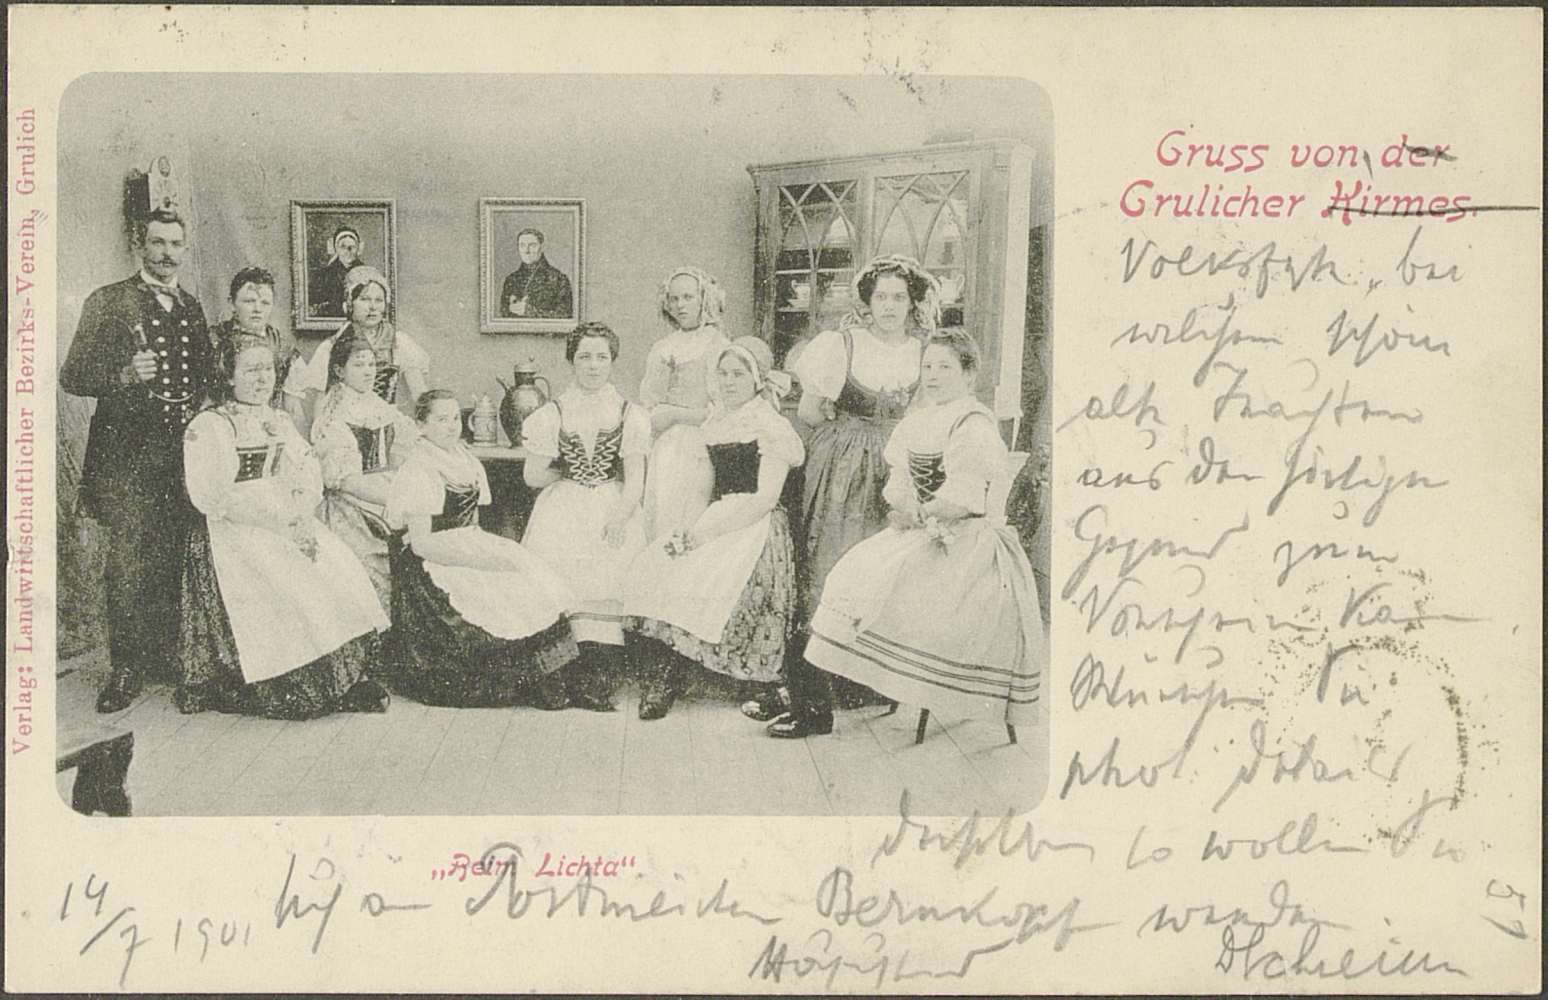 Verlag: Landwirtschaftlicher Bezirks-Verein, Grulich
Gruss von der
Grulicher Kirmes.
Volksfeste, bei
welchem schöne
alte Trachten
aus der hiesigen
Gegend zum
Vorschein kam.
Wünschen Sie
phot. Detail
derselben so wollen Sie
„Beim Lichta“
sich an Postmeister Bernkopf wenden.
14/7 1901
57